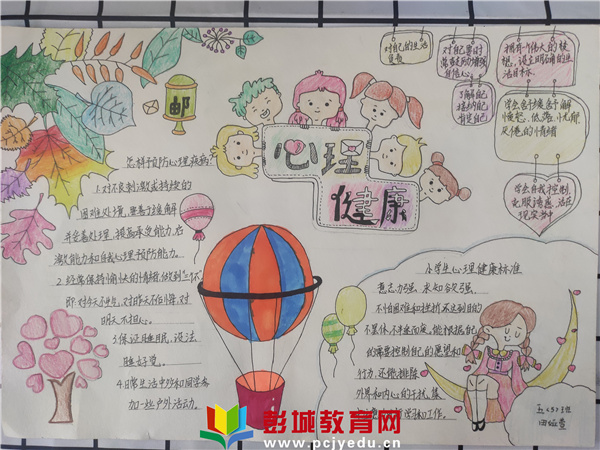 邮
心理
健康
怎样预防心理疾病?
1.对不良刺激或持续的
困难处境,要善于缓解
并妥善处理,提高承受能力,
激能力和自我心理预防能力。
2.经常保持愉快的情绪,做到"三不"
即对今天不生气,对昨天不后悔,对
明天不担心。
3.保证睡眠,设法
睡好觉。
4.日常生活中多和同学参
加一些户外活动。
对自己的生活
负责
对自己要时
常
自信心。
了解自己
接纳自己
肯定自己
拥有一个伟大的梦
想,设立明确的生
活目标
学会
愤怒、低落、忧郁
及倦的情绪
学会自我控制,
克服诱惑,活在
现实当中
小学生心理健康标准
意志力强,求知欲强,
不怕困难和挫折,不达到目的
不罢休,不半途而废,能根据自己
的需要控制自己的愿望和
行为,还能排除
外界和内心的干扰,集
学习和工作。
五(5)班
彭城教育网
www.pcjyedu.cn